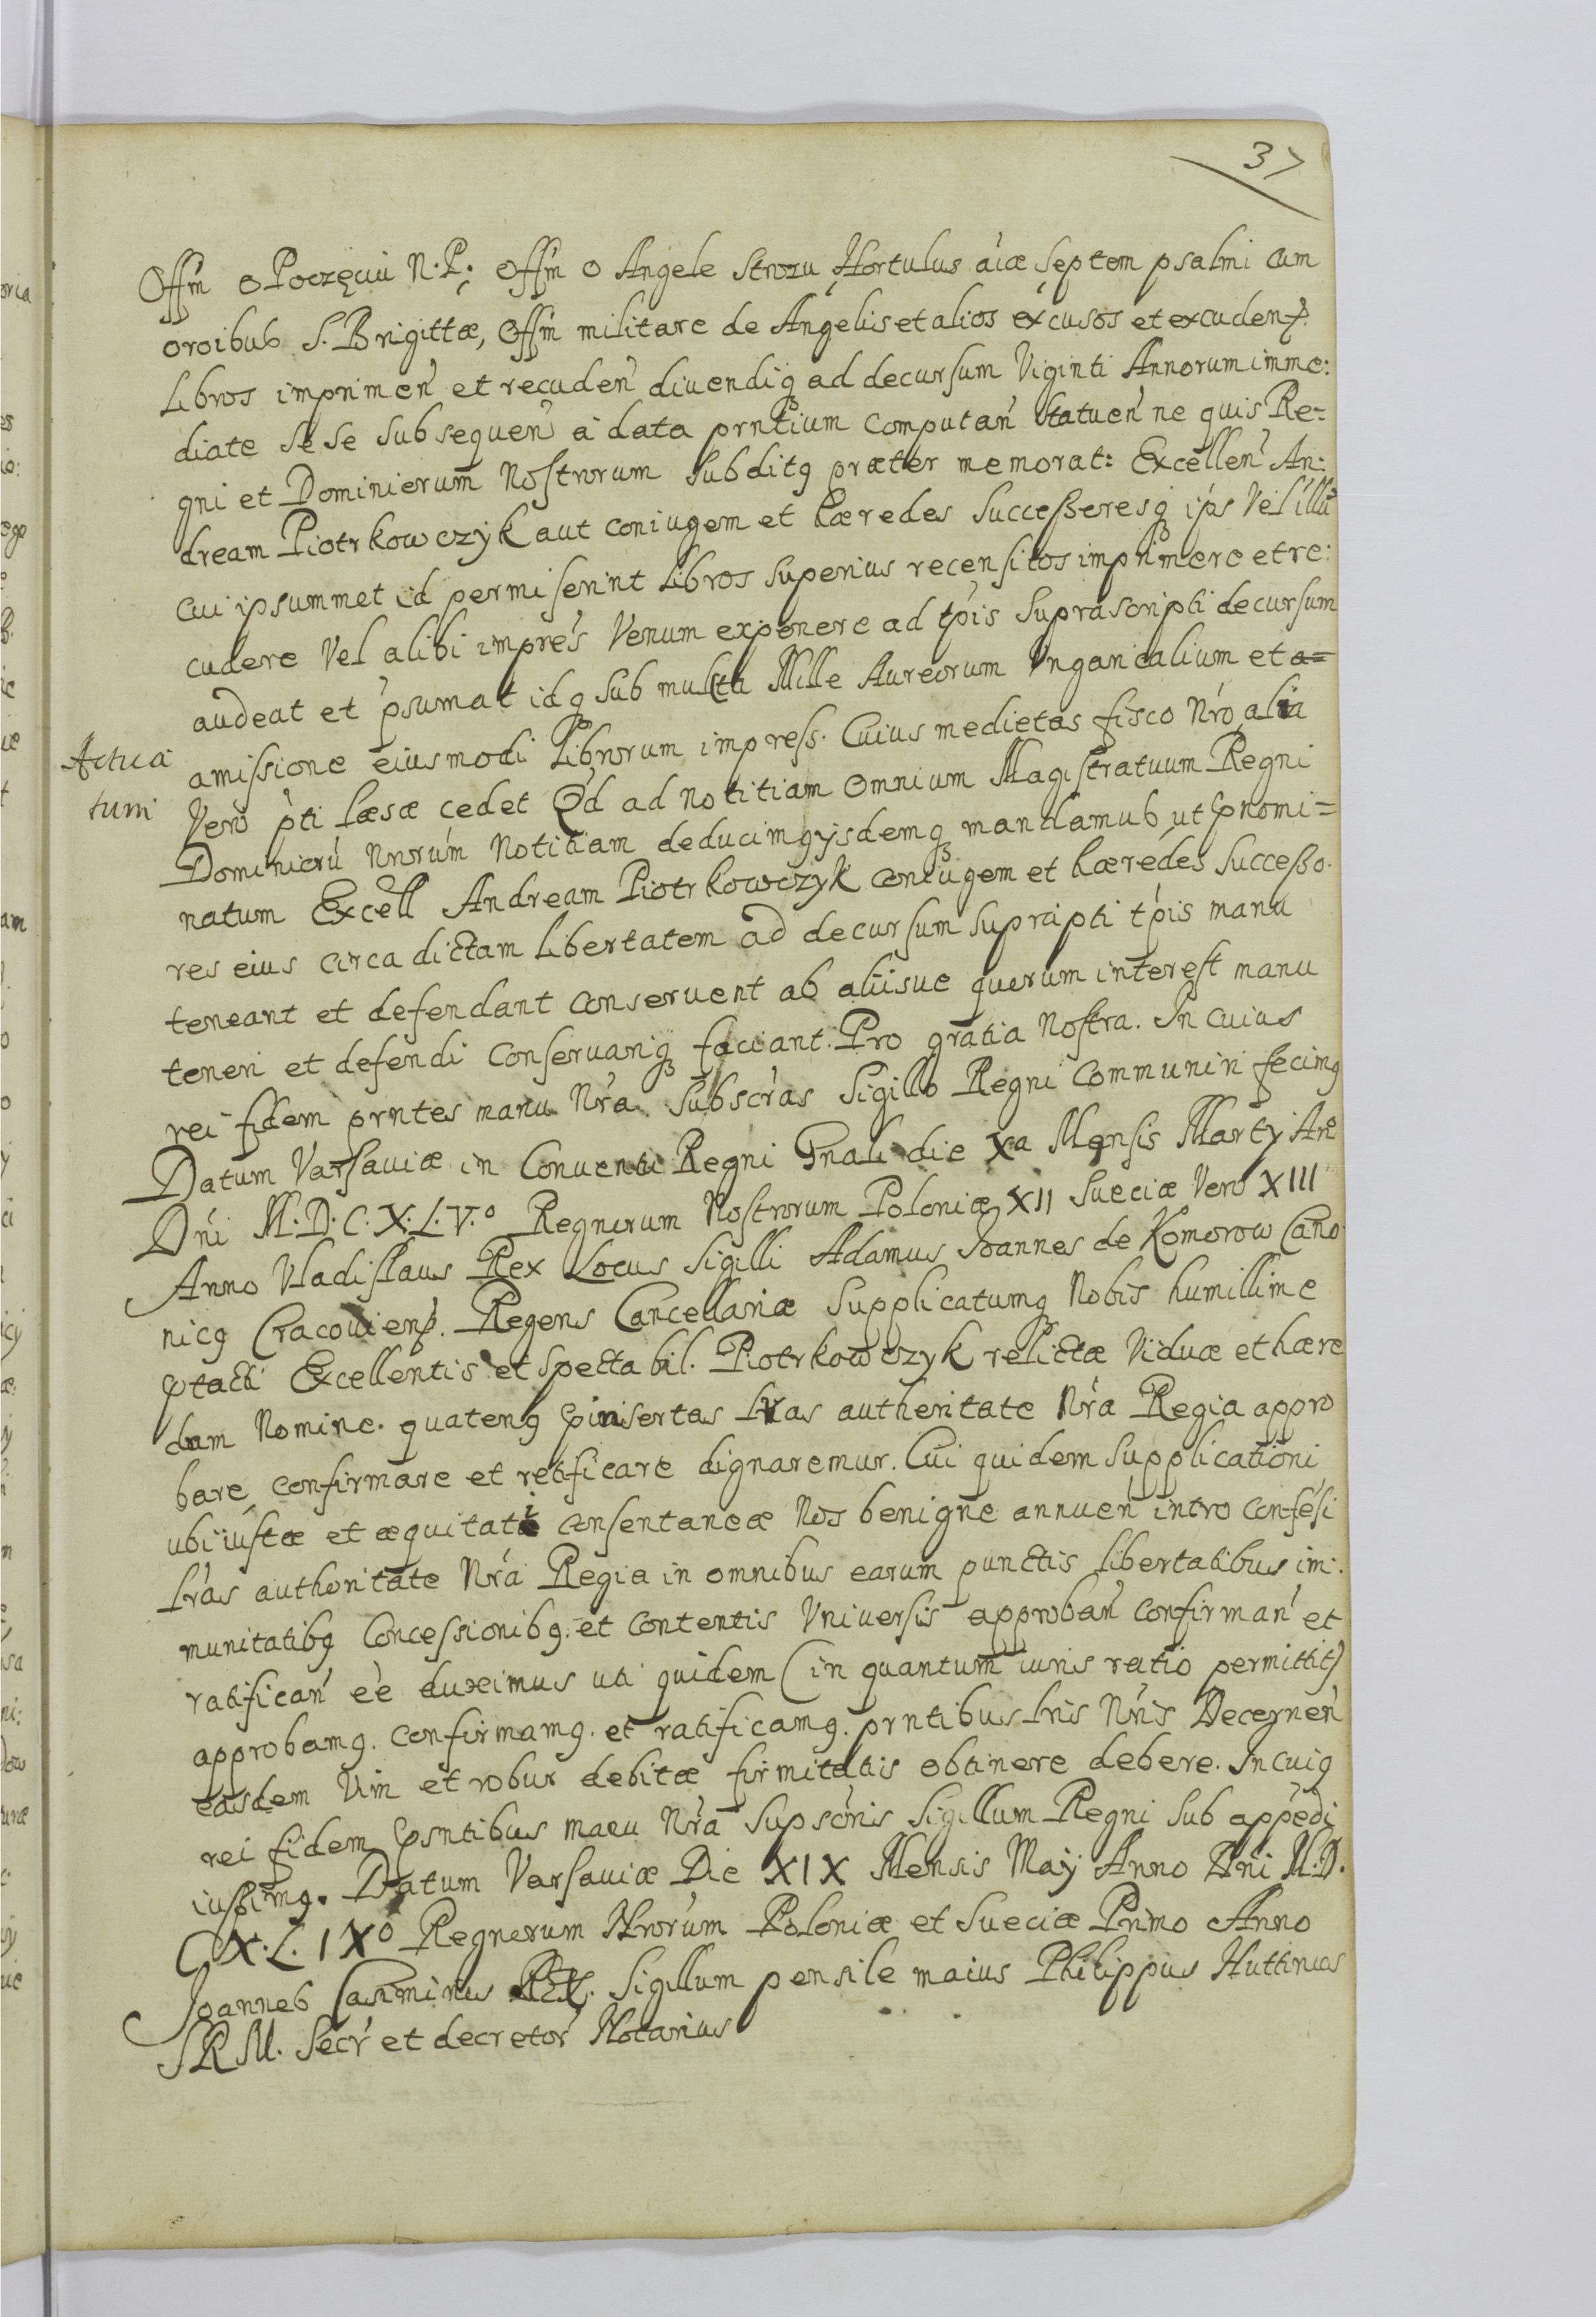 37
Offm o Poczęciu N. P. Offm o Angele Strozu Hortulus aiæ septem psalmi cum
oroibus S. Brigittæ, Offm militare de Angelis et alios excusos et excuden
Libros imprimen et recuden divendiq ad decursum Viginti Annorum imme:
diate sese subsequen a data prntium computan statuen ne quis Re=
gni et Dominiorum Nostrorum subditq præter memorat: Excellen An:
dream Piotrkowczyk aut coniugem et hæredes Successoresq ips Vel illū
cui ipsummet id permiserint Libros superius recensitos imprimere et re:
cudere Vel alibi impres Venum exponere ad tpis suprascripti decursum
audeat et psumat idq sub mulcta Mille Aureorum Ungaricalium et a=
amissione eiusmodi Librorum impress. Cuius medietas fisco Nro alia
Actica
tum
Vero pti læsæ cedet Qd ad notitiam omnium Magistratuum Regni
Dominiorū Nnrum Notitiam deducimq ijsdemq mandamus ut pnomi=
natum Excell Andream Piotrkowczyk coniugem et hæredes Successo.
res eius circa dictam libertatem ad decursum suprapti tpis manu
teneant et defendant conservent ab aliisue quorum interest manu
teneri et defendi conservariq faciant. Pro gratia Nostra. In cuius
rei fidem prntes manu Nra subscras Sigillo Regni communiri fecimq
Datum Varsaviæ in Conventu Regni Gnali die Xa Mensis Marty Ano
Dni M.D.C.X.L.V.o Regnorum Nostrorum Poloniæ XII Sueciæ Vero XIII
Anno Vladislaus Rex Locus Sigilli Adamus Joannes de Komorow Cano
nicq Cracovien. Regens Cancellariæ Supplicatumq Nobis humillime
ptacti Excellentis et Spectabil. Piotrkowczyk relictæ Viduæ et hære
dum Nomine. quatenq pinsertas lras authoritate Nra Regia appro
bare confirmare et ratificare dignaremur. Cui quidem supplicationi
ubi iustæ et æquitati consentaneæ Nos benigne annuen intro confesi
lras authoritate Nra Regia in omnibus earum punctis libertatibus im:
munitatibq Concessionibq. et contentis Vniversis approban confirman et
ratifican ee duximus uti quidem (in quantum iuris ratio permittit)
approbamq. confirmamq. et ratificamq. prntibus lris Nris Decernen
easdem Vim et robur debitæ firmitatis obtinere debere. In cuiq
rei fidem psntibus manu Nra supscris Sigillum Regni sub appedi
iussimq. Datum Varsaviæ Die XIX Mensis Maij Anno Dni M.D.
C X.L.IXo Regnorum Nrorum Poloniæ et Sueciæ Primo Anno
Joannes Casimirus REX. Sigillum pensile maius Philippus Huttinius
S R M. Secr et decretor Notarius